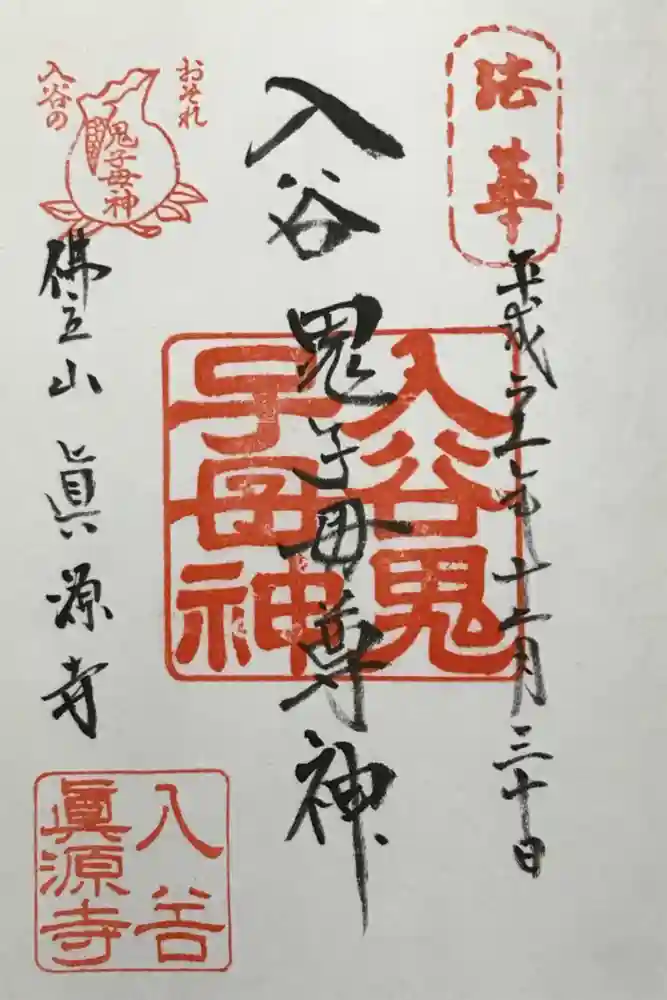 法華
平成二五年十二月三十日
入谷鬼子母尊神
入谷鬼
子母神
おそれ
入谷の
鬼子母神
佛立山 眞源寺
入谷
眞源寺